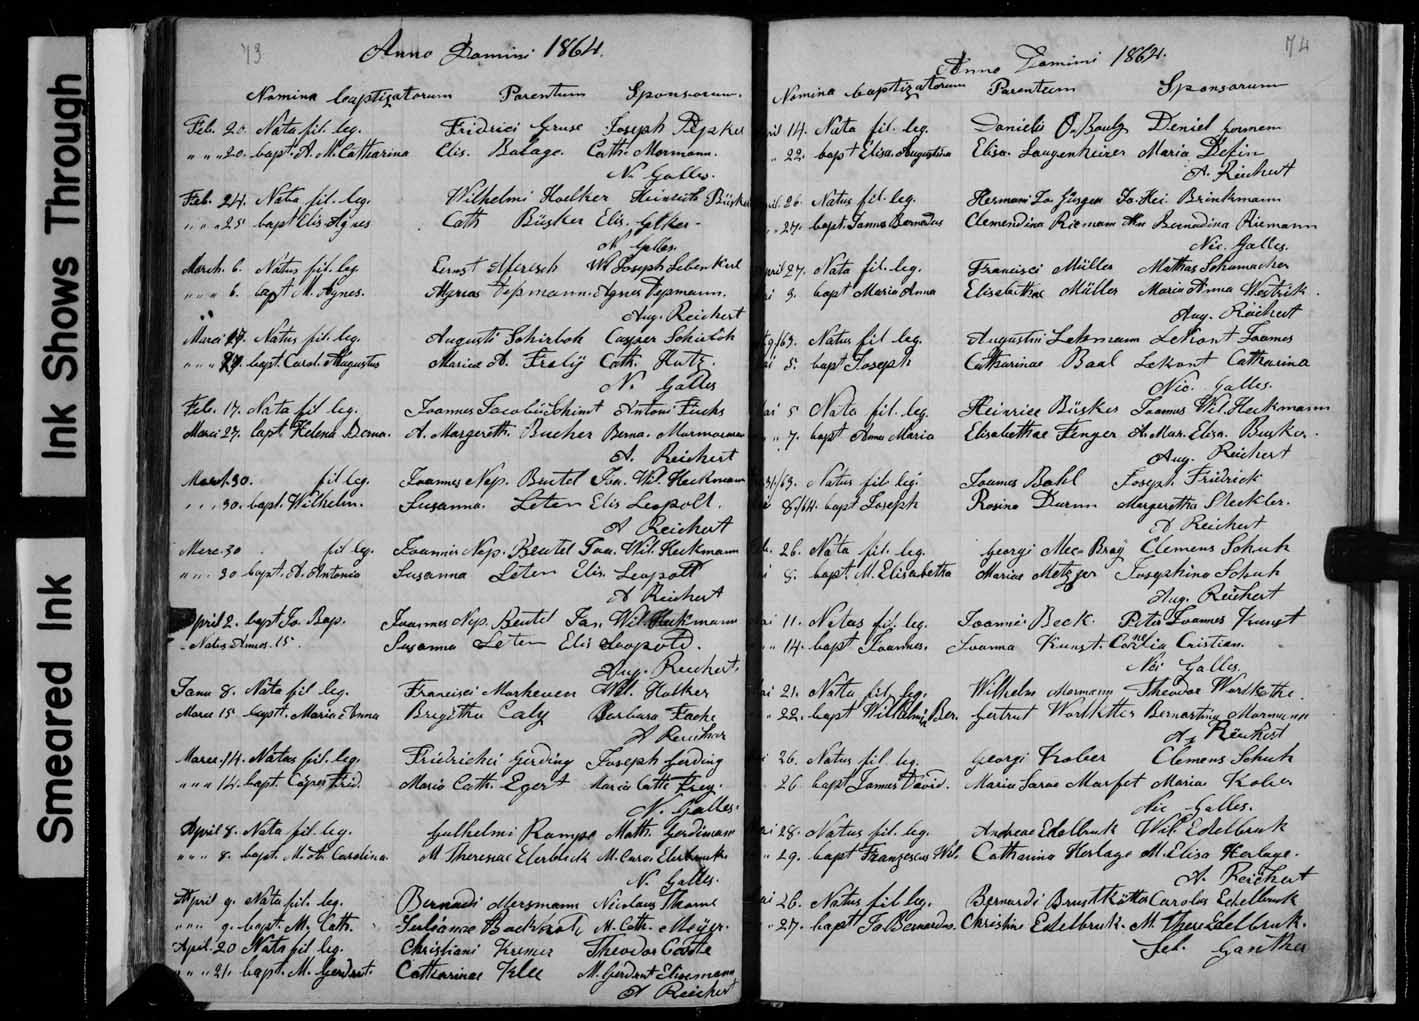 Ink Shows Through
Smeared Ink
73
Anno Domini 1864.
Nomina baptizatorum Parentum Sponsorum.
Feb. 20. Nata fil. leg. Fridrici Gruse Joseph
" " " 20. bapt. A. M. Catharina Elis. Balage. Cath. Mormann.
N. Galles.
Feb. 24. Nata fil. leg. Wilhelmi Hoelker Heinrich Büsker
" " " 25 bapt Elis Agnes Cath Büsker Elis. Gelker
N. Galles.
March. 6. Natus fil. leg. Ernst Joseph Lebenkerl
" " " 6. bapt M. Agnes. Agnes Tepmann.
Aug. Reichert
Marci 17. Natus fil. leg. Augusti Schirbok Casper Schirbok
" " " bapt. Carol. Augustus Mariae A. Fraly Cath. Hutz.
N. Galles
Feb. 17. Nata fil leg. Joannes Jacobus Schimt Antoni Fuchs
Marci 27. bapt Helena Berna. A. Margereth. Bucher Berna. Murmann
A. Reichert
March 30. fil leg. Joannes Nep. Beutel Joa. Wil. Heckmann
" " " 30. bapt. Wilhelm. Susanna. Leten Elis Leopolt.
A Reichert
Marc. 30 fil leg. Joannis Nep. Beutel Joa. Wil. Heckmann
" " " 30 bapt. A. Antonio Susanna Leten Elis. Leopolt
A Reichert
April 2. bapt Jo. Bap. Joannes Nep. Beutel Joa. Wil. Heckmann
Natus Annos 15. Susanna Leten Elis Leopold.
Aug. Reichert.
Janu 8. Nata fil leg. Francisci Morheuer Wil. Holker
Marci 15 bapt. Maria Anna Brigetha Caly Barbara Fache
A Reichert
Marci. 14. Natus fil. leg. Fridrichi Gerding Joseph Gerding
" " " 14. bapt. Casper Frid. Maria Cath. Egert Maria Cath. Frey.
N. Galles.
April 8. Nata fil. leg. Gulhelmi Kampe Math. Gerdimann
" " " 8. bapt. M. A. Carolina. M Theresae Elerbeck M. Carol Elerbruck
N. Galles.
April 9. Nata fil. leg. Bernardi Mersmann Nicolaus Thome
" " " 9. bapt. M. Cath. Juliannae M. Cath. Meÿer.
April. 20 Nata fil. leg. Christiani Kremer Theodor Coste
" " " 21. bapt. M. Gerdrut. Catharinae Klee M. Gerdrut Elisemann
A Reichert
74
Anno Domini 1864.
Nomina baptizatorum Parentum Sponsorum
ril 14. Nata fil. leg. Danielis Deniel
" 22. bapt Elisa. Augustina Elisa. Langenheizer Maria Defin
A. Reichert
ril 26. Natus fil. leg. Hermani Jo. Jürgen Jo. Hei. Brinkmann
" 27. bapt. Janna Bernadus Clemendina Riemann Bernadina Riemann
Nic. Galles.
ril 27. Nata fil. leg. Francisci Müller Mathas Schumacher
i 3. bapt Maria Anna Elisabethae Müller Maria Anna Westrik.
Aug. Reichert
/63. Natus fil. leg. Augustin Lekmann Lekont Joannes
i 5. bapt Joseph Catharinae Baal Lekont Catharina
Nic. Galles.
ai 5 Nata fil. leg. Heinrice Büsker Joannes Wil. Heckmann
" 7. bapt Anna Maria Elisabethae Fenger A. Mar. Elisa. Busker.
Aug. Reichert
/63. Natus fil leg. Joannes Bahl Joseph. Fridrick
i 8./64. bapt Joseph Rosina Durm Margeretha Steckler.
A Reichert
26. Nata fil. leg. Georgi Mec Bray Clemens Schuh
i 8. bapt. M. Elisabetha Mariae Metzger Josephina Schuh
Aug. Reichert
ai 11. Natus fil. leg. Joanni Beck. Peter Joannes Kunst
" 14. bapt Joannes. Joanna Kunst. Cornelia Cristian.
Nic Galles.
ai 21. Nata fil. leg. Wilhelm Mormann Theodor Wordkotte.
" 22. bapt Wilhelmin Ber. Gertrut Wortkotte Bernartina Mormann
A. Reichert
i 26. Natus fil. leg. Georgi Kober Clemens Schuh
26 bapt James David. Maria Sarae Marfet Mariae Kober
Nic Galles.
ai 28. Natus fil. leg. Andreae Edelbruk Wil. Edelbruk
" 29. bapt Franzescus Wil. Catharina Herlage M. Elisa Herlage.
A. Reichert
ai 26. Natus fil leg. Bernardi Carolus Edelbruck
" 27. bapt Jo. Bernardus. Christine Edelbruk. M. Theres Edelbruk.
Feb. Ganther